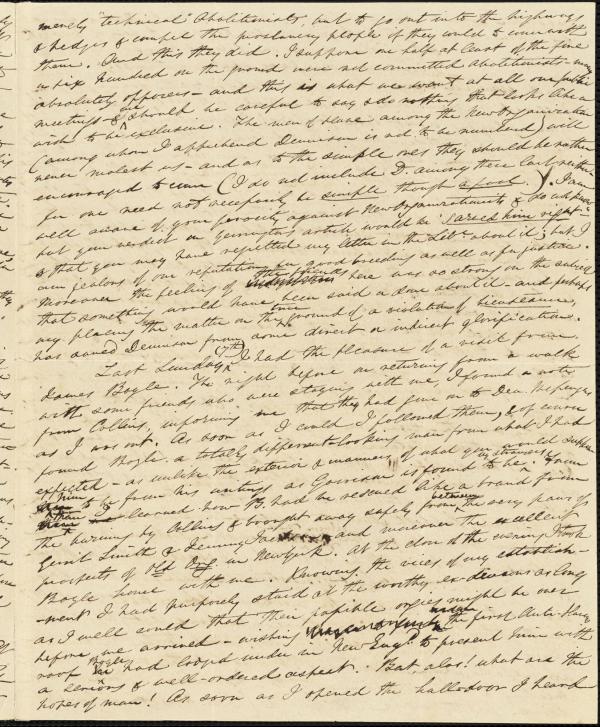 merely "technical" Abolitionists, but to go out into the highways
& hedges & compel the proslavery people if they would to come with
them. And this they did. I suppose one half at least of the five
or six hundred on the ground were not committed Abolitionists - many
absolutely opposers - and this is what we want at all our public
meetings - & we should be careful to say & do nothing that looks like a
wish to be exclusive. The men of straw among the New Organization
(among whom I apprehend Dennison is not to be numbered) will
never molest us - and as to the simple ones they should be rather
encouraged to come (I do not include D. among these last, neither
for one need not necessarily be simple though a fool.) I am
well aware of your ferocity against New Organizationists & do not know
but your verdict on Garrison's article would be "sarved him right"
& that you may have rejected my letter in the Lib. about it; but I
am jealous of our reputation for good breeding as well as for justice.
Moreover the feeling of the friends here was so strong on the subject
that something would have been said or done about it - and perhaps
my placing the matter on the true ground of a violation of bienseance,
has saved Dennison from some direct or indirect glorification.
Last Sunday 17th I had the pleasure of a visit from
James Boyle. The night before on returning from a walk
with some friends who were staying with me, I found a note
from Collins, informing me that they had gone on to Dea.
as I was out. As soon as I could I followed them, & of course
found Boyle a totally different-looking man from what I had
expected - as unlike the exterior & manners of what you would suppose
him to be from his writing as Garrison is found to be by strangers. From
them I learned how B. had been rescued like a brand from
the burning by Collins & brought away safely from between the very paws of
Gerrit Smith & and moreover the excellent
prospects of Old Org in New York. At the close of the evening I took
Boyle home with me. Knowing the vices of my establish-
-ment I had purposely staid at the worthy ex-deacons as long
as I well could that their possible orgies might be over
before we arrived - wishing the first Anti Slavery
roof Boyle had lodged under in New Engd. to present him with
a serious & well-ordered aspect. But alas! what are the
hopes of man! As soon as I opened the hall-door I heard